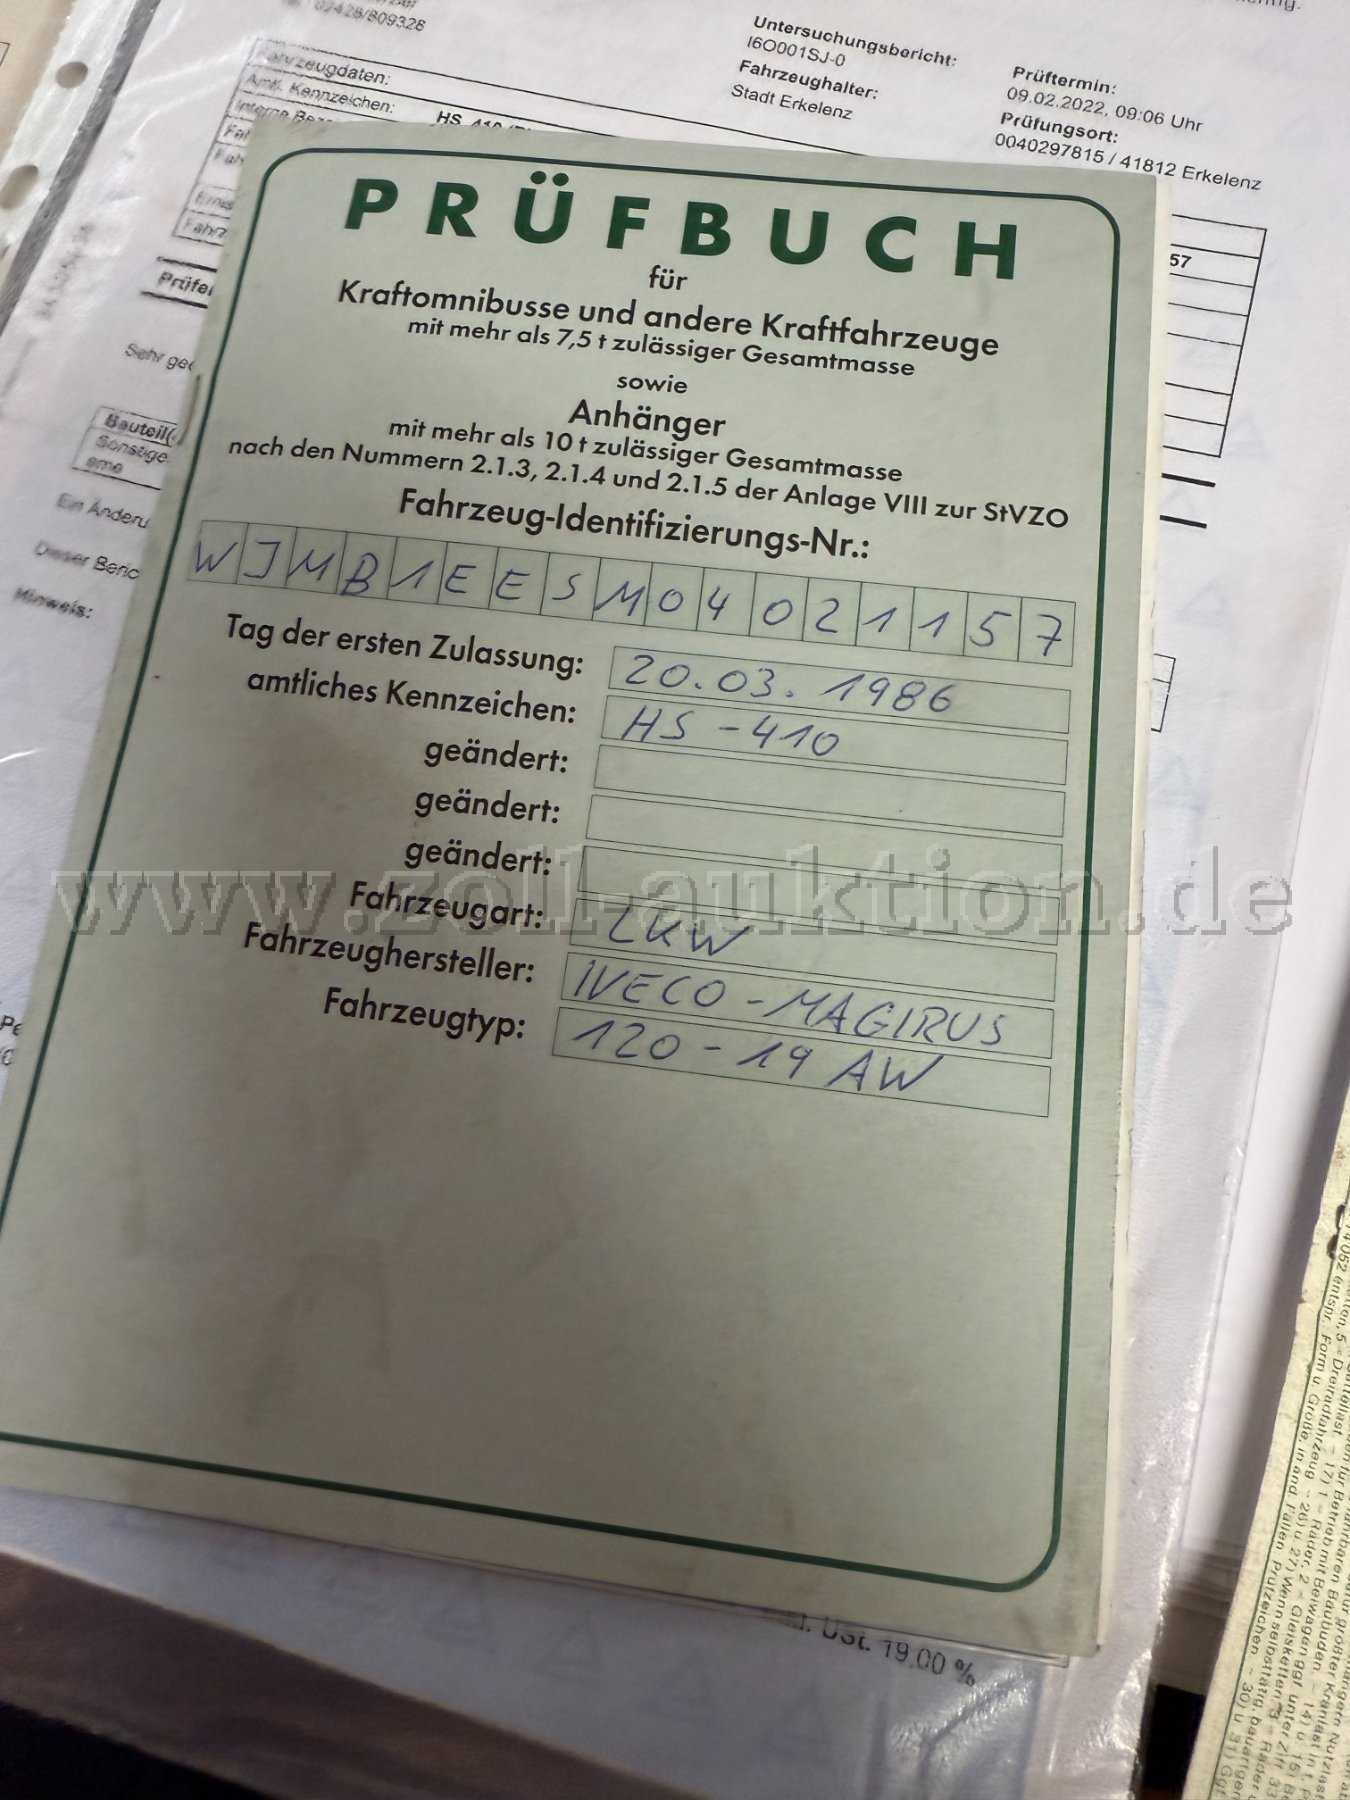 02428/809328
Untersuchungsbericht:
I6O001SJ-0
Fahrzeughalter:
Stadt Erkelenz
Prüftermin:
09.02.2022, 09:06 Uhr
Prüfungsort:
0040297815 / 41812 Erkelenz
Fahrzeugdaten:
Amtl. Kennzeichen: HS
57
PRÜFBUCH
für
Kraftomnibusse und andere Kraftfahrzeuge
mit mehr als 7,5 t zulässiger Gesamtmasse
sowie
Anhänger
mit mehr als 10 t zulässiger Gesamtmasse
nach den Nummern 2.1.3, 2.1.4 und 2.1.5 der Anlage VIII zur StVZO
Fahrzeug-Identifizierungs-Nr.:
WJMB1EESM04021157
Tag der ersten Zulassung: 20.03.1986
amtliches Kennzeichen: HS-410
geändert:
geändert:
geändert:
Fahrzeugart: LKW
Fahrzeughersteller: IVECO-MAGIRUS
Fahrzeugtyp: 120-19 AW
www.zoll-auktion.de
Sehr gee
Bauteil(
Sonstige
eme
Ein Änderu
Dieser Beric
Hinweis:
USt. 19.00 %